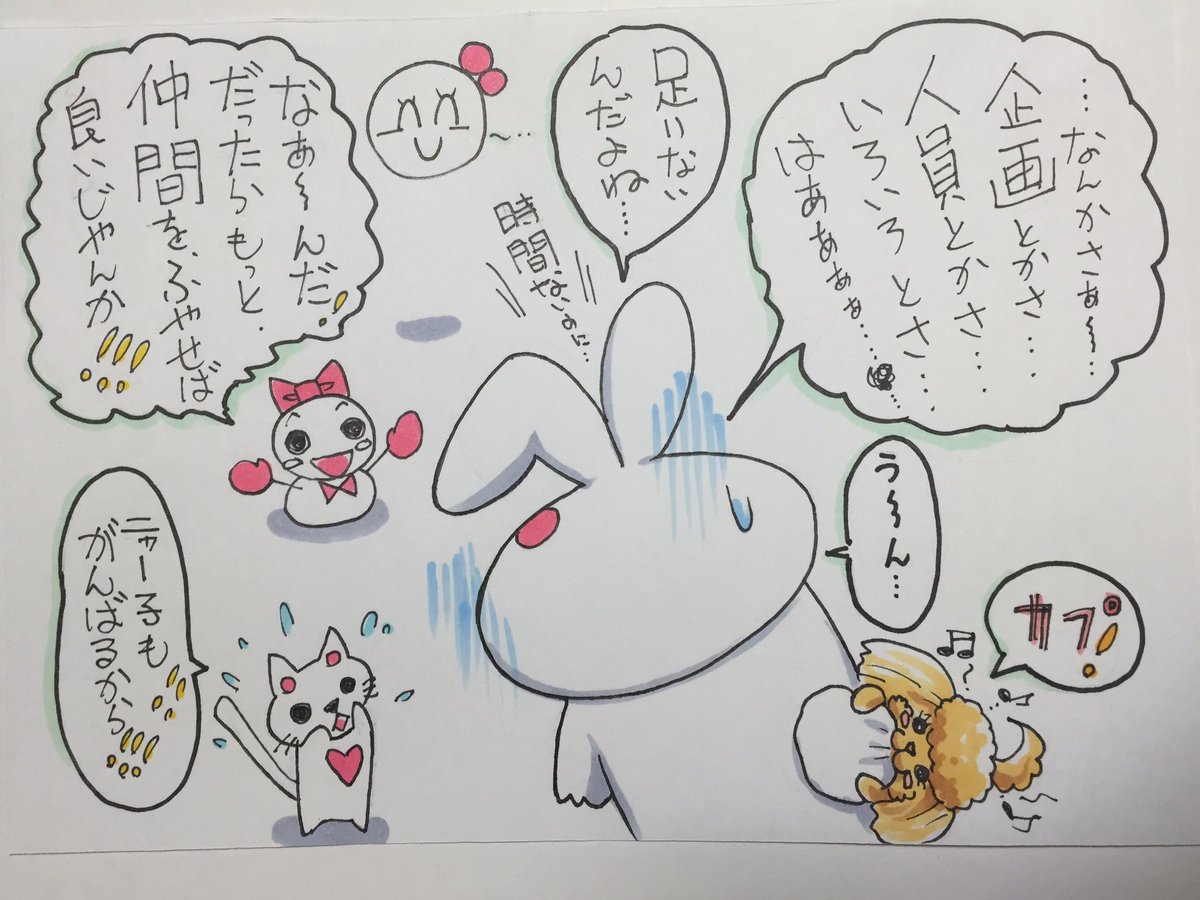 …なんかさぁ～…
企画とかさ…
人員とかさ…
いろいろとさ…
はあぁぁぁ……
足りない
んだよね……
時間ないのに…
なぁ～んだ!
だったらもっと、
仲間を、ふやせば
良いじゃんか!!!
う～～ん…
カプ!
ニャー子も
がんばるから!!!